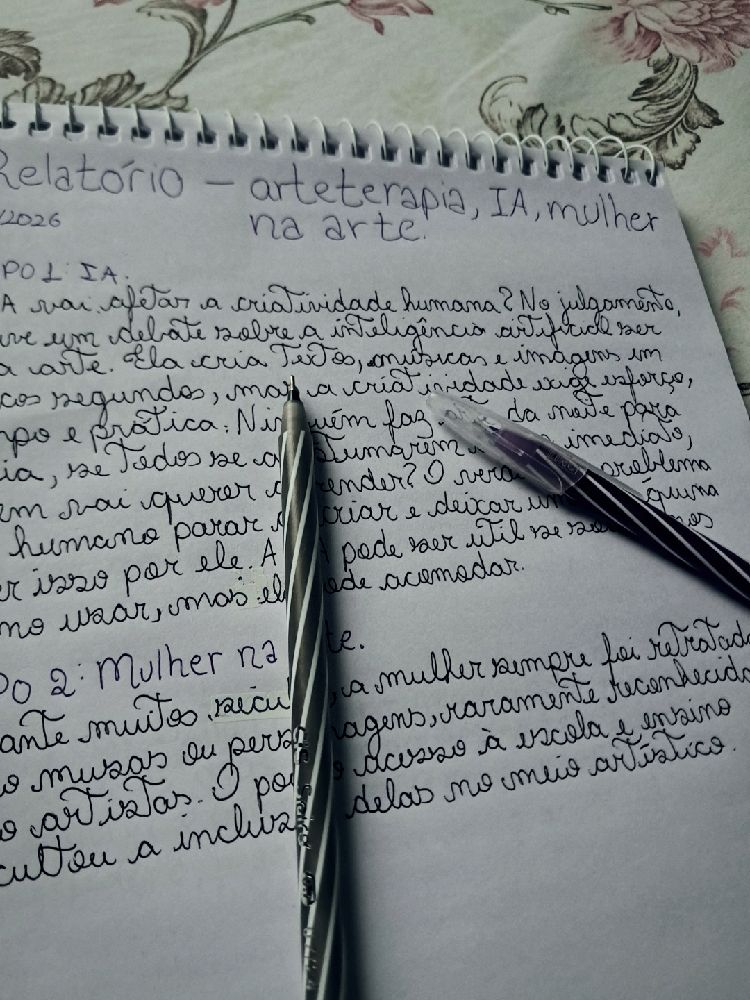 Relatório - arteterapia, IA, mulher
/2026 na arte.
PO 1 IA.
A vai afetar a criatividade humana? No julgamento,
ve um debate sobre a inteligência artificial ser
a arte. Ela cria textos, músicas e imagens em
cos segundos, mas a criatividade exige esforço,
po e prática. Nin uém faz da noite para
ia, se todos se a stumarem imediato,
em vai querer render? O ver problema
humano parar criar e deixar um quina
er isso por ele. A pode ser útil se so mos
mo usar, mas el ode acomodar.
PO 2: Mulher na te.
ante muitos sécu , a mulher sempre foi retratada
o musas ou pers agens, raramente reconhecida
o artistas. O po acesso à escola e ensino
cultou a inclus delas no meio artístico.